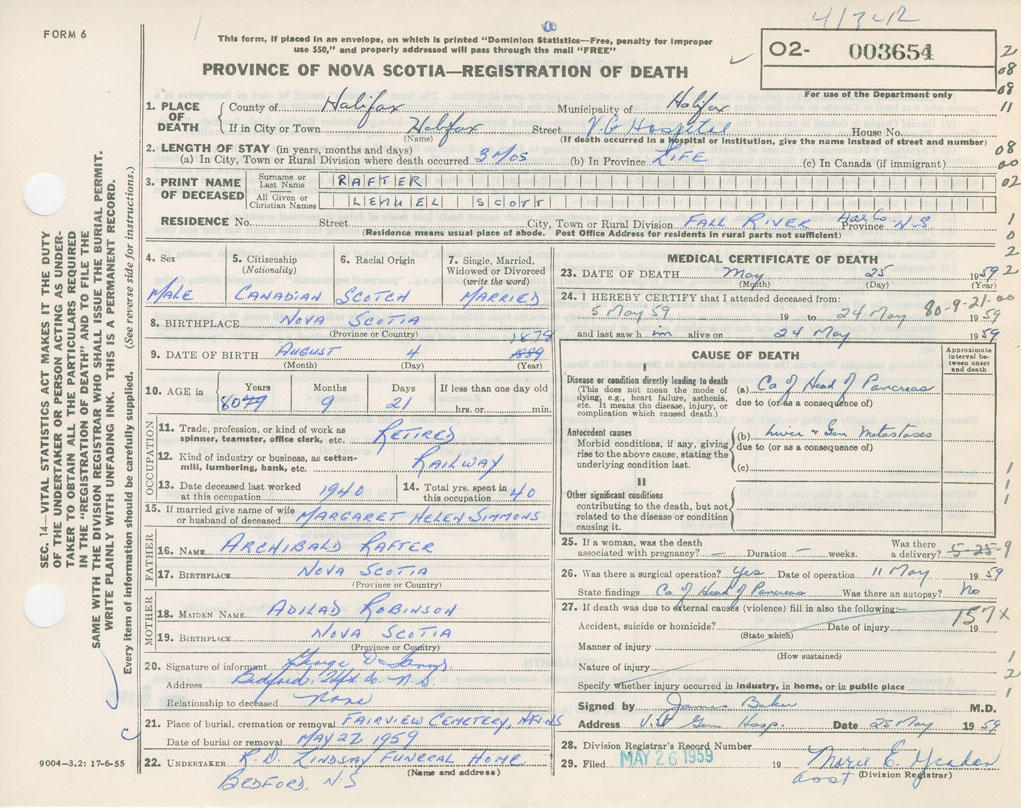 4/3 LR
FORM 6
This form, if placed in an envelope, on which is printed "Dominion Statistics—Free, penalty for improper
use $50," and properly addressed will pass through the mail "FREE"
O2- 003654
For use of the Department only
PROVINCE OF NOVA SCOTIA—REGISTRATION OF DEATH
2
08
08
11
08
00
02
1
0
2
2
1. PLACE OF DEATH County of Halifax Municipality of Halifax
If in City or Town Halifax Street V G Hospital House No.
(Name) (If death occurred in a hospital or institution, give the name instead of street and number)
2. LENGTH OF STAY (in years, months and days)
(a) In City, Town or Rural Division where death occurred 3 Mos (b) In Province LIFE (c) In Canada (if immigrant)
3. PRINT NAME OF DECEASED
Surname or Last Name RAFTER
All Given or Christian Names LEMUEL SCOTT
RESIDENCE No. Street City, Town or Rural Division FALL RIVER Province N.S
(Residence means usual place of abode. Post Office Address for residents in rural parts not sufficient)
4. Sex MALE
5. Citizenship (Nationality) CANADIAN
6. Racial Origin SCOTCH
7. Single, Married, Widowed or Divorced (write the word) MARRIED
8. BIRTHPLACE NOVA SCOTIA
(Province or Country)
1879
9. DATE OF BIRTH AUGUST 4 1889
(Month) (Day) (Year)
10. AGE in Years 80 79 Months 9 Days 21 If less than one day old
hrs. or min.
OCCUPATION
11. Trade, profession, or kind of work as spinner, teamster, office clerk, etc. RETIRED
12. Kind of industry or business, as cotton-mill, lumbering, bank, etc. RAILWAY
13. Date deceased last worked at this occupation 1940 14. Total yrs. spent in this occupation 40
15. If married give name of wife or husband of deceased MARGARET HELEN SIMMONS
FATHER
16. NAME ARCHIBALD RAFTER
17. BIRTHPLACE NOVA SCOTIA
(Province or Country)
MOTHER
18. MAIDEN NAME ADILAD ROBINSON
19. BIRTHPLACE NOVA SCOTIA
(Province or Country)
20. Signature of informant George D
Address Bedford, Hfx Co. N.S.
Relationship to deceased None
21. Place of burial, cremation or removal FAIRVIEW CEMETERY, HFX NS
Date of burial or removal MAY 27 1959
22. UNDERTAKER R.D. LINDSAY FUNERAL HOME
(Name and address)
BEDFORD, N S
MEDICAL CERTIFICATE OF DEATH
23. DATE OF DEATH May 25 1959
(Month) (Day) (Year)
24. I HEREBY CERTIFY that I attended deceased from:
80-9-21-00
5 May 59 19 to 24 May 1959
and last saw him alive on 24 May 1959
CAUSE OF DEATH
Approximate interval between onset and death
I
Disease or condition directly leading to death
(This does not mean the mode of dying, e.g., heart failure, asthenia, etc. It means the disease, injury, or complication which caused death.)
(a) Ca of Head of Pancreas
due to (or as a consequence of)
Antecedent causes
Morbid conditions, if any, giving rise to the above cause, stating the underlying condition last.
(b) Liver + Gen Metastases
due to (or as a consequence of)
(c)
II
Other significant conditions
contributing to the death, but not related to the disease or condition causing it.
25. If a woman, was the death associated with pregnancy? — Duration — weeks. Was there a delivery? 5-25-9
26. Was there a surgical operation? Yes Date of operation 11 May 1959
State findings Ca of Head of Pancreas Was there an autopsy? No
27. If death was due to external causes (violence) fill in also the following:—
157x
Accident, suicide or homicide? Date of injury 19
(State which)
Manner of injury
(How sustained)
Nature of injury
Specify whether injury occurred in industry, in home, or in public place
1
1
1
1
2
1
Signed by James Baker M.D.
Address V.G. Gen Hosp. Date 25 May 1959
28. Division Registrar's Record Number
29. Filed MAY 26 1959 19 Marie E.
(Division Registrar)
SEC. 14—VITAL STATISTICS ACT MAKES IT THE DUTY
OF THE UNDERTAKER OR PERSON ACTING AS UNDER-
TAKER TO OBTAIN ALL THE PARTICULARS REQUIRED
IN THE "REGISTRATION OF DEATH" AND TO FILE THE
SAME WITH THE DIVISION REGISTRAR WHO SHALL ISSUE THE BURIAL PERMIT.
WRITE PLAINLY WITH UNFADING INK. THIS IS A PERMANENT RECORD.
Every item of information should be carefully supplied. (See reverse side for instructions.)
9004-3.2: 17-6-55